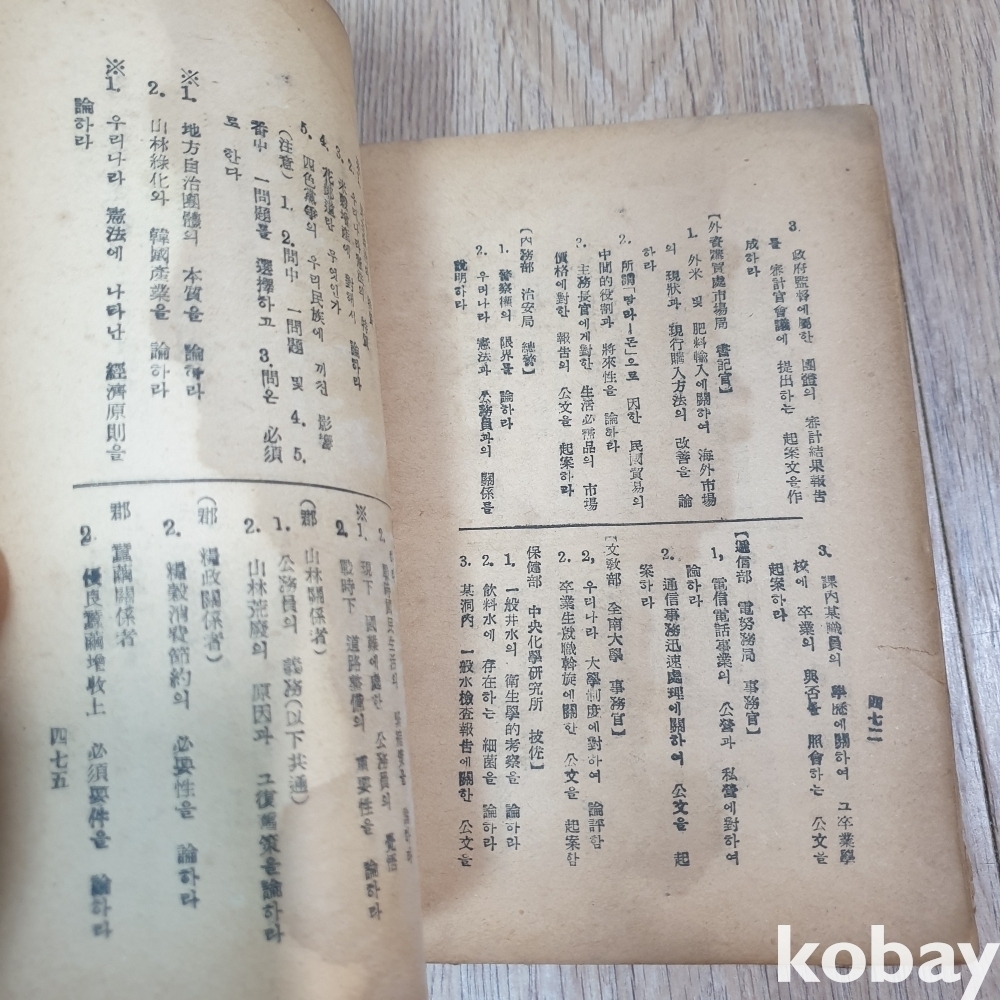 3. 政府監督에屬한 團體의 審計結果報告
를 審計官會議에 提出하는 起案文을作
成하라
【外資購買處市場局 書記官】
1. 外米 및 肥料輸入에關하여 海外市場
의 現狀과 現行購入方法의 改善을 論
하라
2. 所謂「땅라ㅣ몬」으로 因한 民國貿易의
中間的役割과 將來性을 論하라
3. 主務長官에게對한 生活必需品의 市場
價格에對한 報告의 公文을 起案하라
【內務部 治安局 總警】
1. 警察權의 限界를 論하라
2. 우리나라 憲法과 公務員과의 關係를
說明하라
3. 課內某職員의 學歷에關하여 그卒業學
校에 卒業의 與否를 照會하는 公文을
起案하라
【遞信部 電務局 事務官】
1, 電信電話事業의 公營과 私營에對하여
論하라
2. 通信事務迅速處理에關하여 公文을 起
案하라
【文敎部 全南大學 事務官】
2, 우리나라 大學制度에對하여 論評함
2. 卒業生就職斡旋에關한 公文을 起案함
保健部 中央化學硏究所 技佐】
1, 一般井水의 衛生學的考察을 論하라
2. 飮料水에 存在하는 細菌을 論하라
3. 某洞內 一般水檢查報告에關한 公文을
四七二
3. 米穀增産에 對해서 論하라
4. 花郞道란 무엇인가
5. 四色黨爭의 우리民族에 끼친 影響
(注意) 1. 2.問中 一問題 및 4. 5.
番中 一問題를 選擇하고 3.問은 必須
로 한다
※1. 地方自治團體의 本質을 論하라
2. 山林綠化와 韓國產業을 論하라
※1. 우리나라 憲法에 나타난 經濟原則을
論하라
※1. 現下 國難에處한 公務員의 覺悟
2. 戰時下 道路整備의 重要性을 論하라
(郡 山林關係者)
1. 公務員의 義務(以下共通)
2. 山林荒廢의 原因과 그復舊策을論하라
(郡 糧政關係者)
2. 糧穀消費節約의 必要性을 論하라
郡 蠶繭關係者
2 優良蠶繭增收上 必須要件을 論하라
四七五